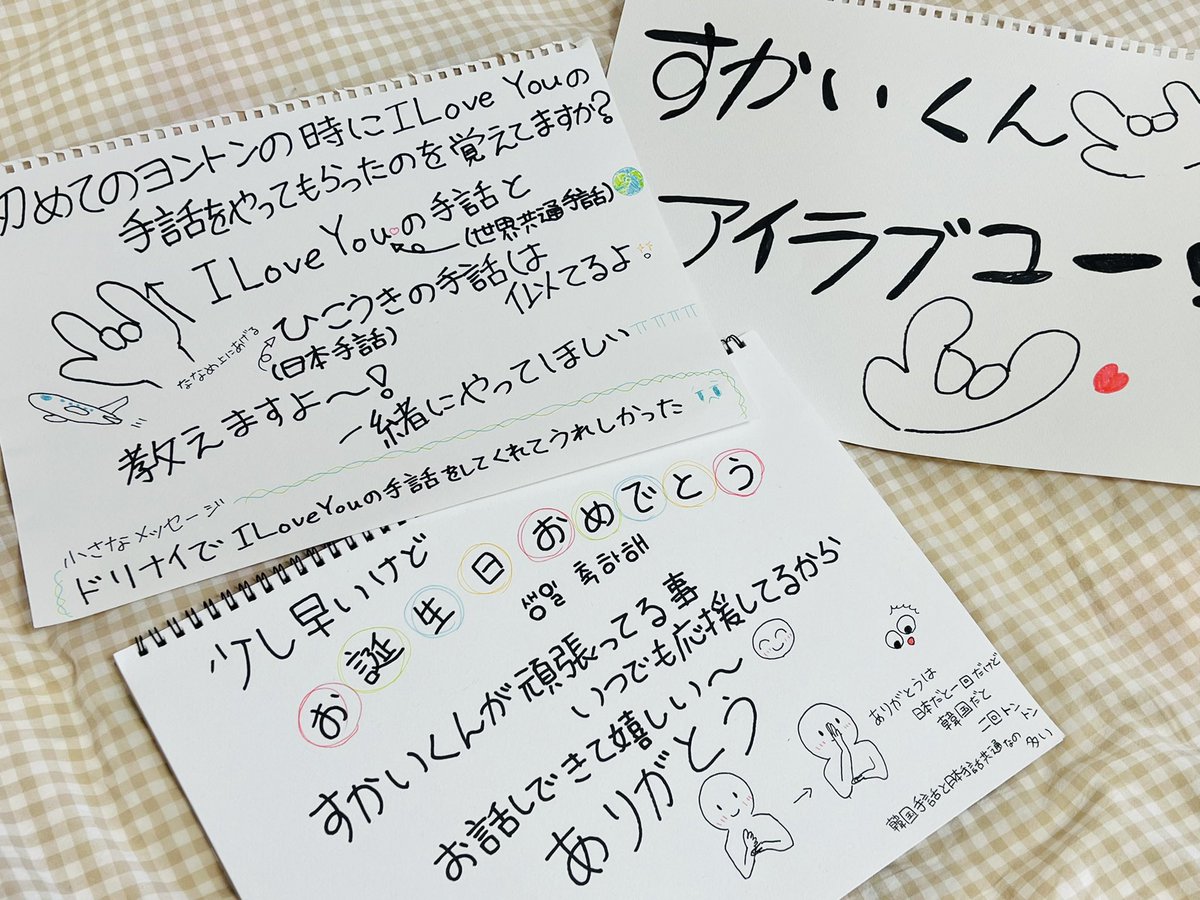 初めてのヨントンの時にI Love Youの
手話をやってもらったのを覚えてますか?
I Love Youの手話と
(世界共通手話)
ひこうきの手話は
(日本手話)
似てるよ
ななめ上にあげる
教えますよ〜!
一緒にやってほしいㅠㅠㅠㅠ
小さなメッセージ
ドリナイでI Love Youの手話をしてくれてうれしかった
すかいくん
アイラブユー!
少し早いけど
お誕生日おめでとう
생일 축하해
すかいくんが頑張ってる事
いつでも応援してるから
お話しできて嬉しい〜
ありがとう
ありがとうは
日本だと一回だけど
韓国だと
二回トントン
韓国手話と日本手話共通なの
多い